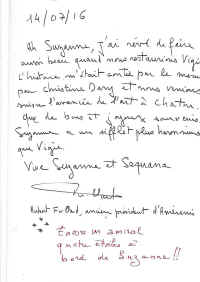 14/07/16
Oh Suzanne, j'ai rêvé de faire
aussi beau quand nous restaurions Vigie
L'histoire m'était contée par le menu
par Christine Dary et nous venions
suivre l'avancée de l'art à Chatou.
Que de bons et joyeux souvenirs.
Suzanne a un sifflet plus harmonieux
que Vigie.
Vive Suzanne et Sequana
Robert ancien président d'Amérami
Encore un amiral
quatre étoiles à
bord de Suzanne !!